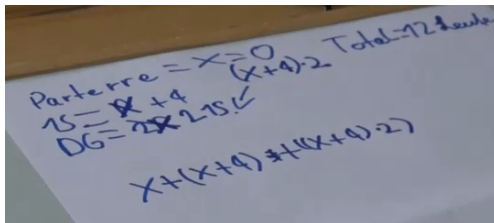 Parterre = x = 0 Total = 12 Leute
1S = x + 4 (x+4)·2
DG = 2x 2 1S. ✓
x+(x+4) + ((x+4)·2)